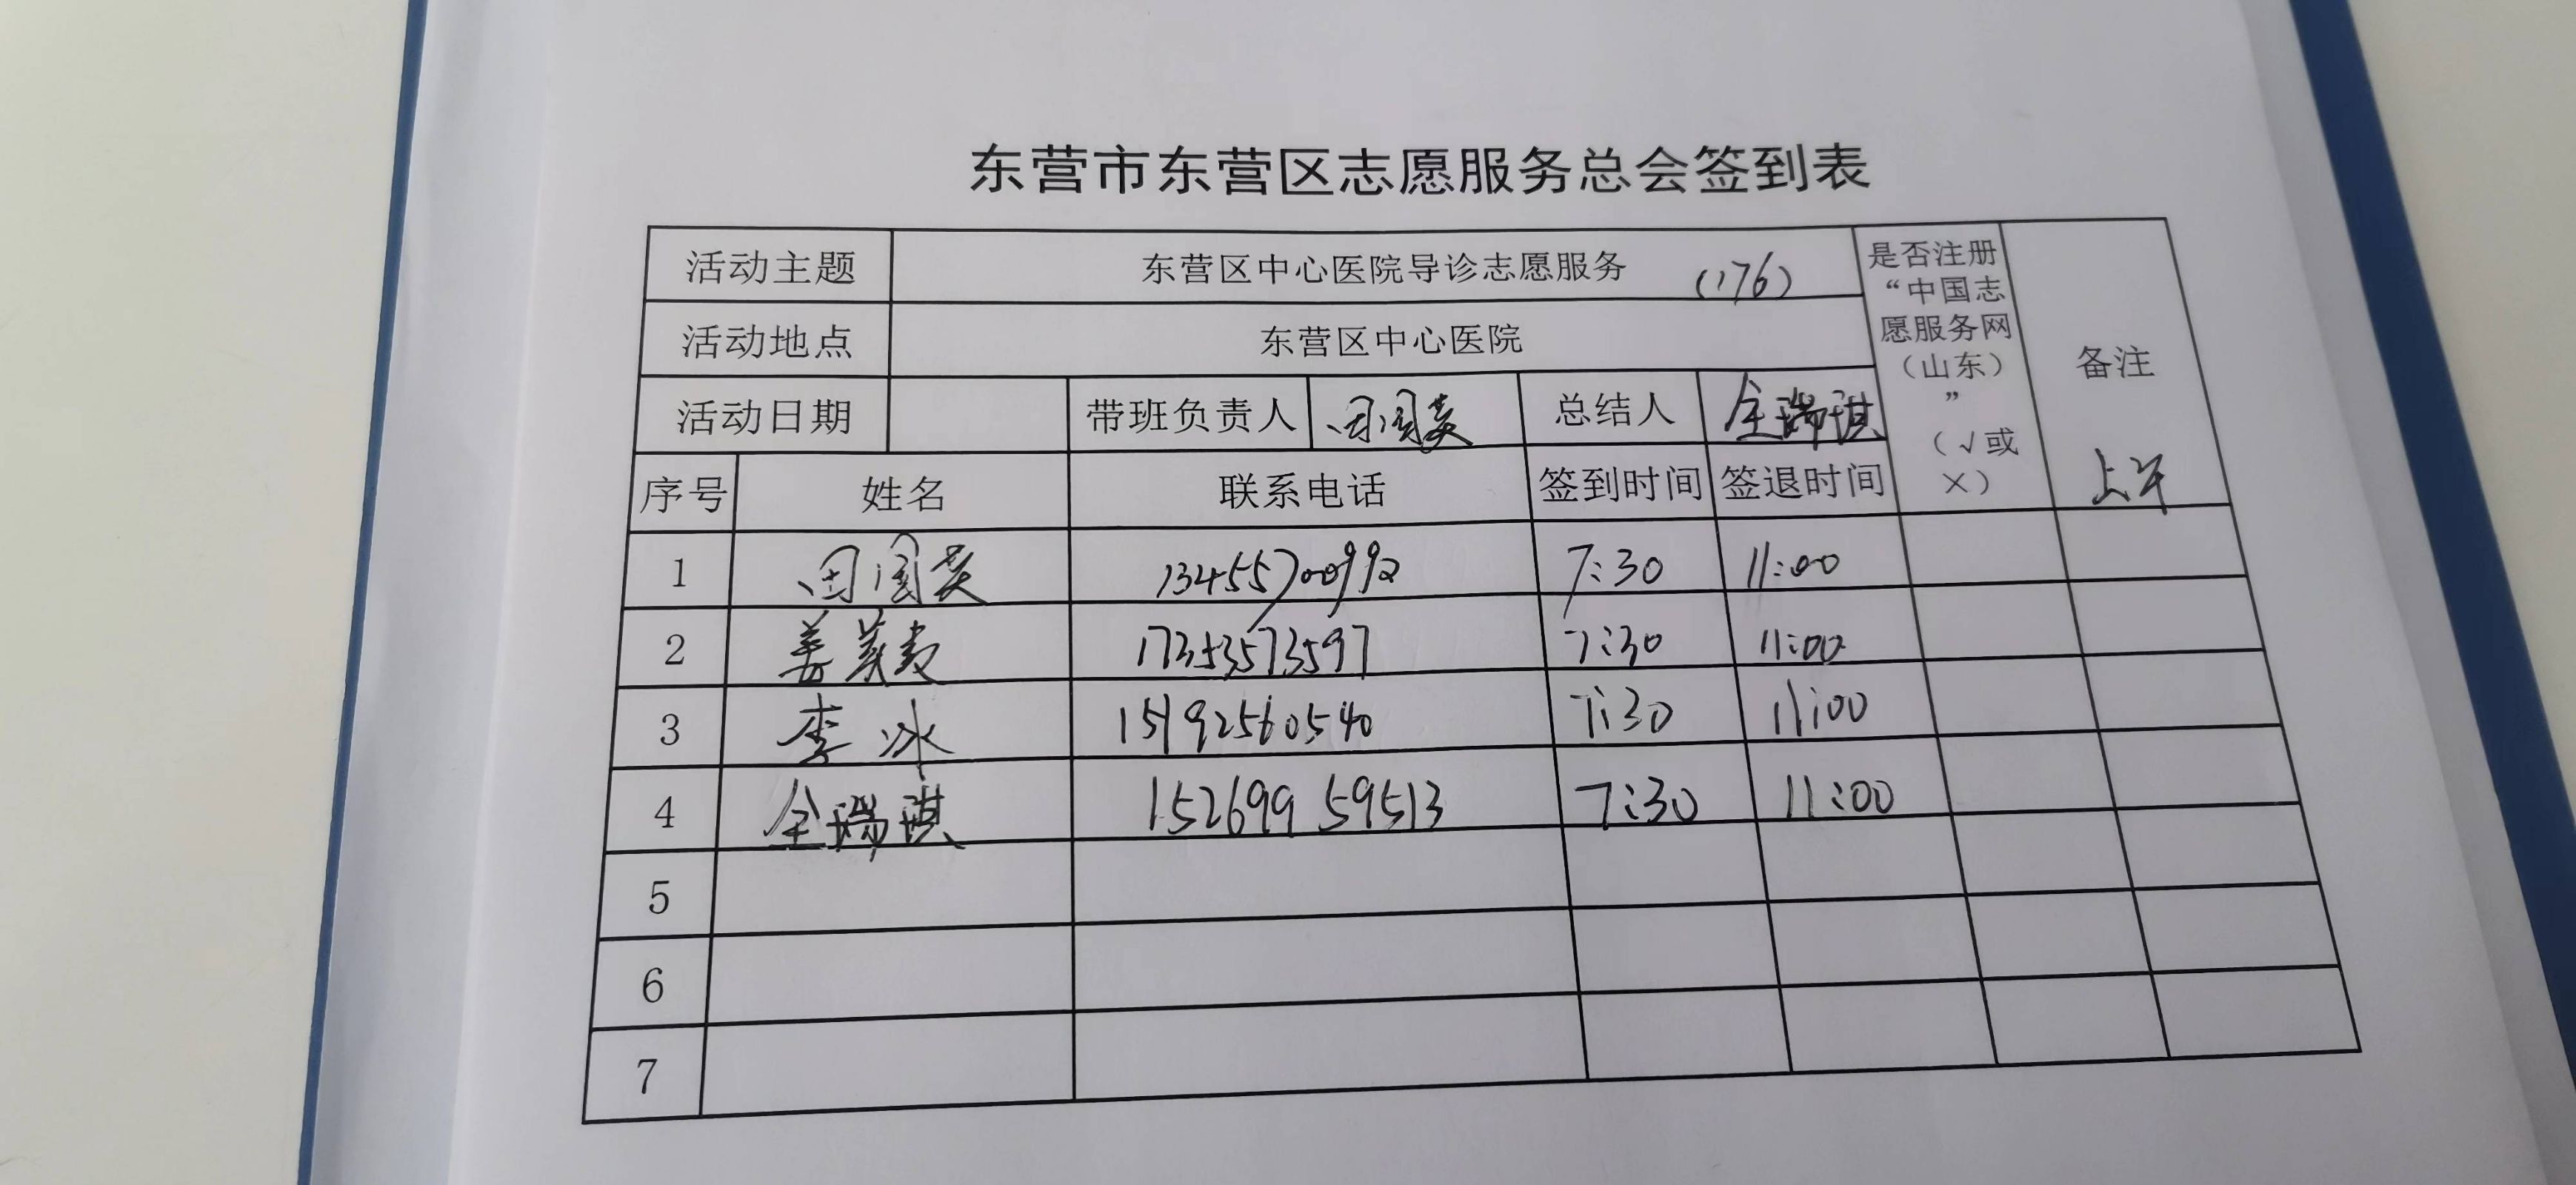 东营市东营区志愿服务总会签到表
活动主题 东营区中心医院导诊志愿服务 (176) 是否注册“中国志愿服务网（山东）”（√或×） 备注 上午
活动地点 东营区中心医院
活动日期 带班负责人 田国英 总结人 全瑞琪
序号 姓名 联系电话 签到时间 签退时间
1 田国英 13455700992 7:30 11:00
2 姜英 17353573597 7:30 11:00
3 李冰 15192560540 7:30 11:00
4 全瑞琪 15269959513 7:30 11:00
5
6
7